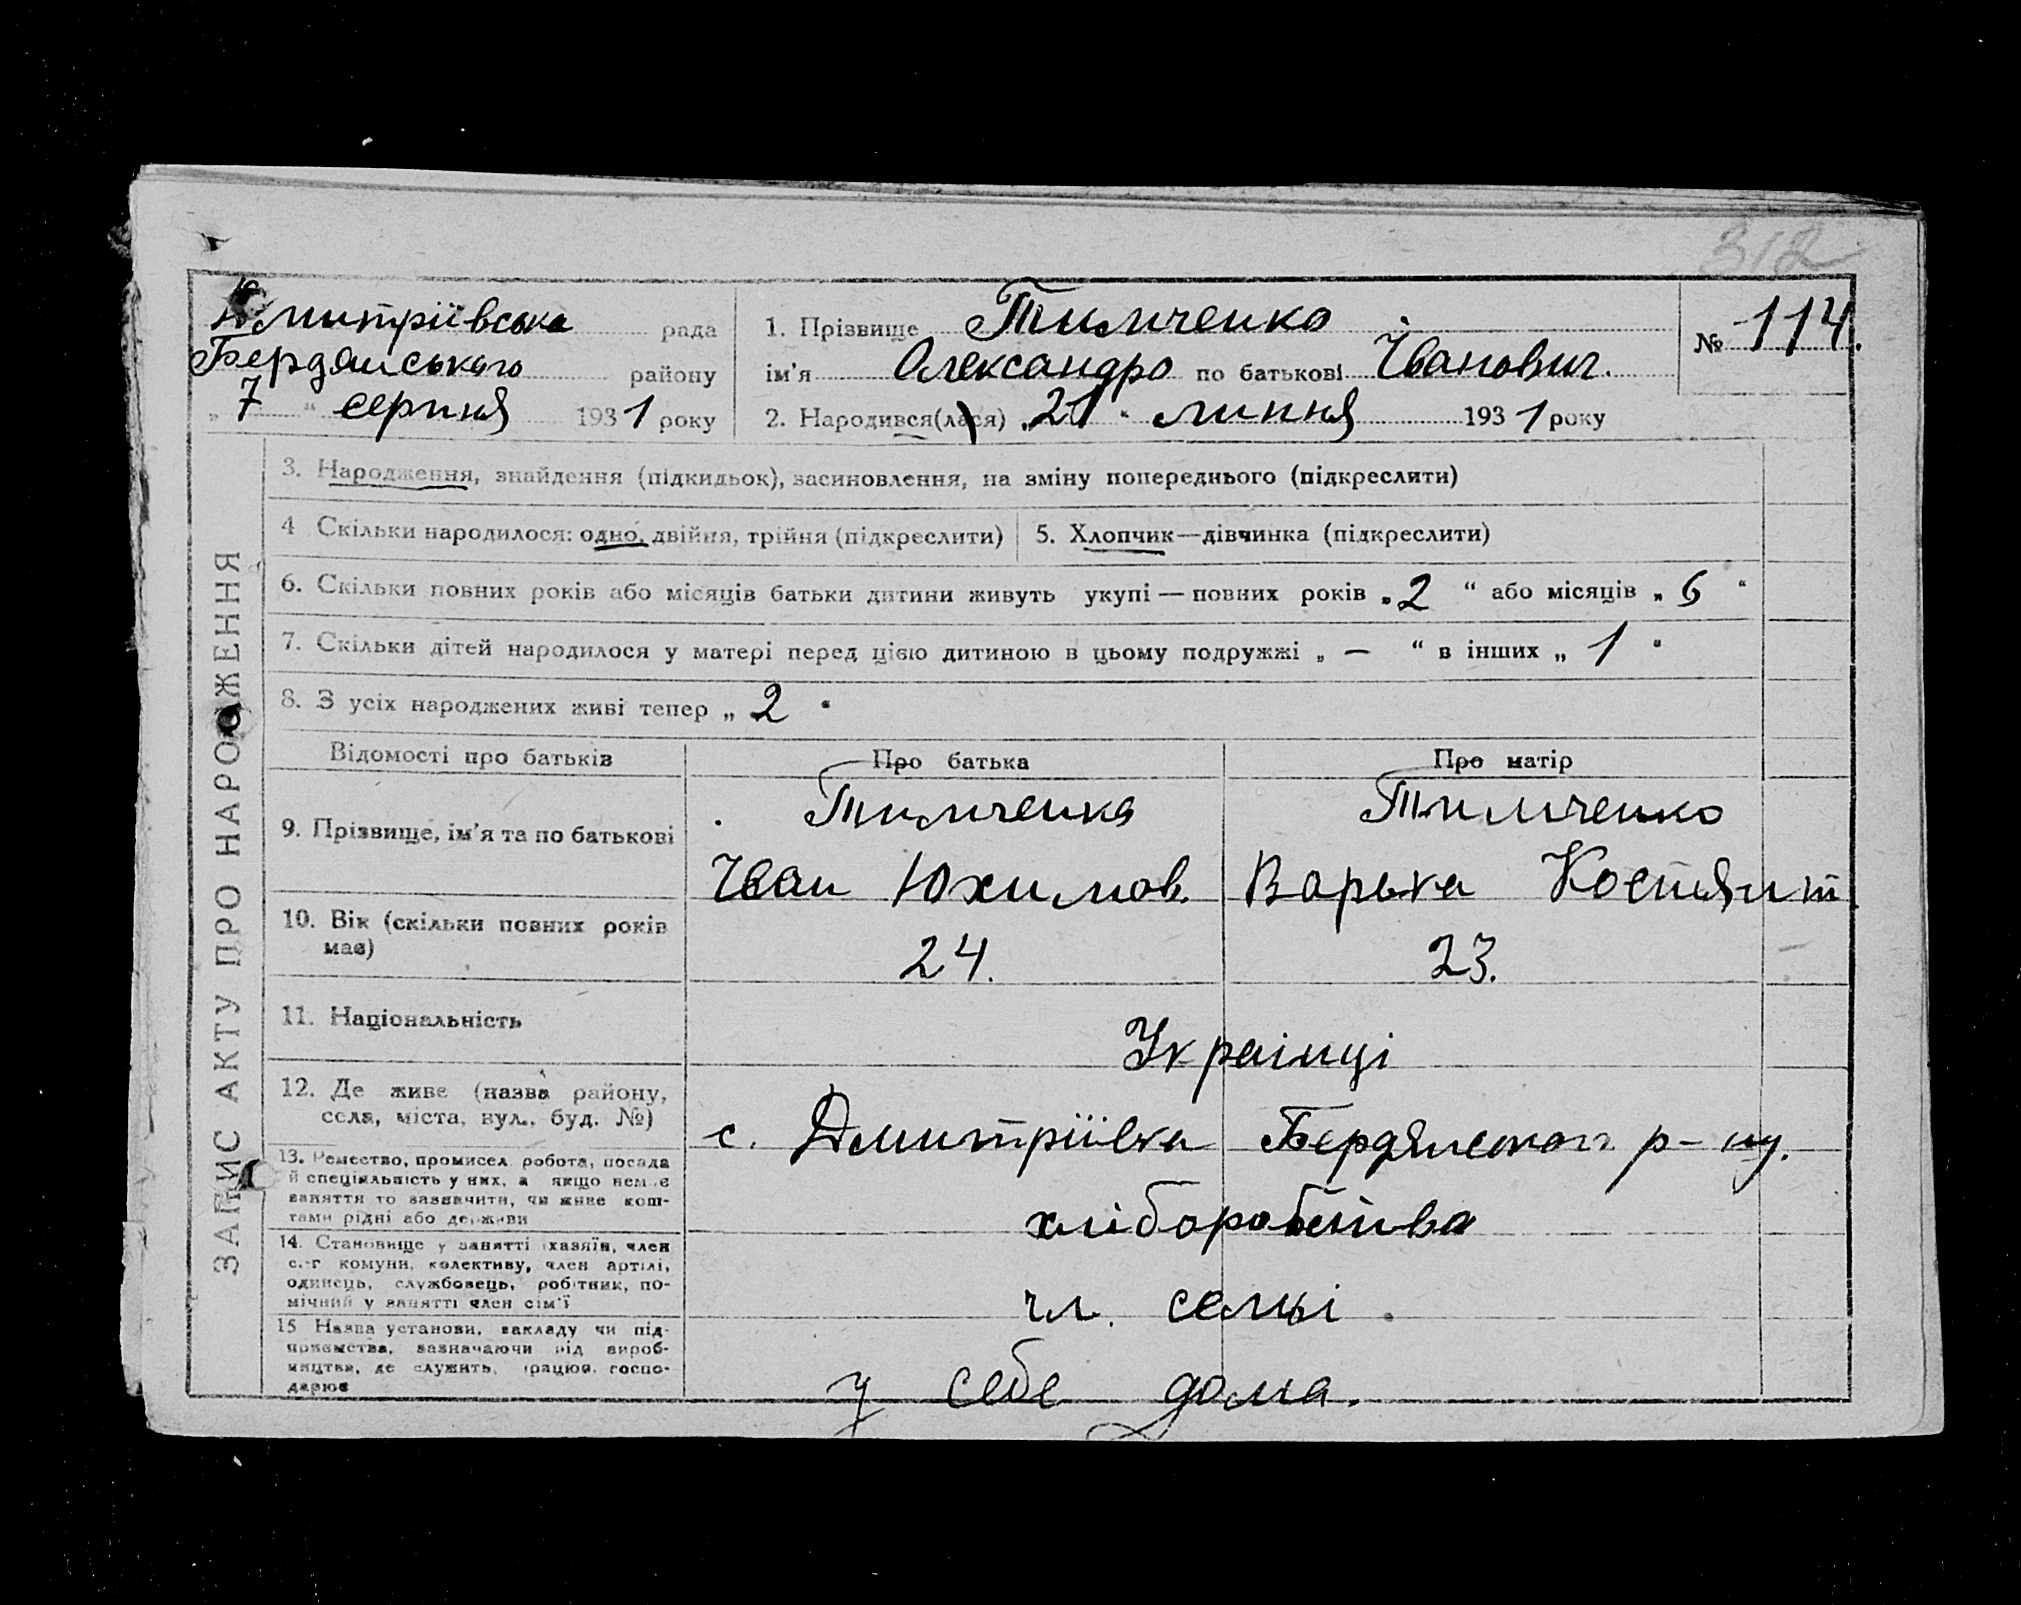 312
Дмитріївська рада
Бердянського району
„ 7 “ серпня 1931 року
1. Прізвище Тимченко
ім'я Олександро по батькові Іванович.
2. Народився(лася) „21“ липня 1931 року
№ 114.
ЗАПИС АКТУ ПРО НАРОДЖЕННЯ
3. Народження, знайдення (підкидьок), засиновлення, на зміну попереднього (підкреслити)
4 Скільки народилося: одно, двійня, трійня (підкреслити)
5. Хлопчик—дівчинка (підкреслити)
6. Скільки повних років або місяців батьки дитини живуть укупі — повних років „ 2 “ або місяців „ 6 “
7. Скільки дітей народилося у матері перед цією дитиною в цьому подружжі „ — “ в інших „ 1 “
8. З усіх народжених живі тепер „ 2 “
Відомості про батьків
Про батька
Про матір
9. Прізвище, ім'я та по батькові
Тимченко
Іван Юхимов.
Тимченко
Варька Костянт
10. Вік (скільки повних років
має)
24.
23.
11. Національність
Українці
12. Де живе (назва району,
села, міста, вул., буд. №)
с. Дмитріївка Бердянського р-ну.
13. Ремество, промисел, робота, посада
й спеціяльність у них, а якщо немає
заняття то зазначити, чи живе кош-
тами рідні або держави
хліборобства
14. Становище у занятті (хазяїн, член
с.-г комуни, колективу, член артілі,
одинець, службовець, робітник, по-
мічний у занятті член сім'ї
чл. семьі.
15 Назва установи, закладу чи під-
приємства, зазначаючи рід вироб-
ництва, де служить, працює, госпо-
дарює
у себе дома.